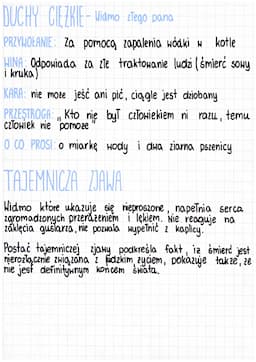 DUCHY CIĘŻKIE - Widmo złego pana
PRZYWOŁANIE: Za pomocą zapalenia wódki w kotle
WINA: Odpowiada za złe traktowanie ludzi (śmierć sowy
i kruka)
KARA: nie może jeść ani pić, ciągle jest dziobany
PRZESTROGA: „Kto nie był człowiekiem ni razu, temu
człowiek nie pomoże"
O CO PROSI: o miarkę wody i dwa ziarna pszenicy
TAJEMNICZA ZJAWA
Widmo które ukazuje się nieproszone, napełnia serca
zgromadzonych przerażeniem i lękiem. Nie reaguje na
zaklęcia guślarza, nie pozwala wypełnić z kaplicy.
Postać tajemniczej zjawy podkreśla fakt, iż śmierć jest
nierozłącznie związana z ludzkim życiem, pokazuje także, że
nie jest definitywnym końcem świata.